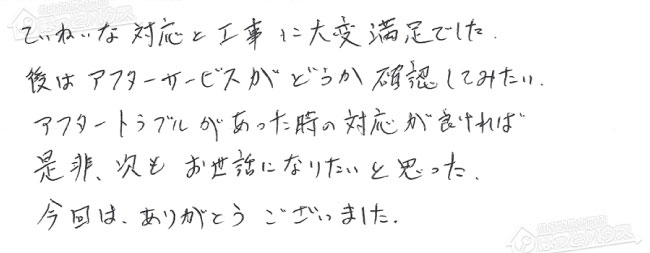 ていねいな対応と工事に大変満足でした.
後はアフターサービスがどうか確認してみたい.
アフタートラブルがあった時の対応が良ければ
是非、次もお世話になりたいと思った.
今回は、ありがとうございました.